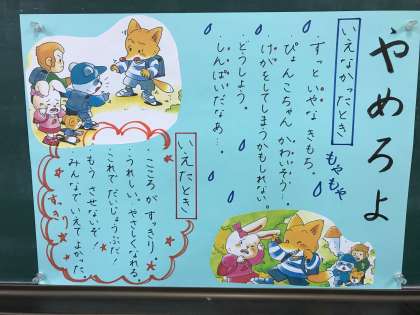 やめろよ
いえなかったとき
・ずっと いやな きもち。
・ぴょんこちゃん かわいそう…
・けがをしてしまうかもしれない。
・どうしよう。
・しんぱいだなあ…。
もやもや
いえたとき
・こころが すっきり。
・うれしい。やさしくなれる。
・これで だいじょうぶだ！
・もう させないぞ！
・みんなで いえて よかった。
すっきり